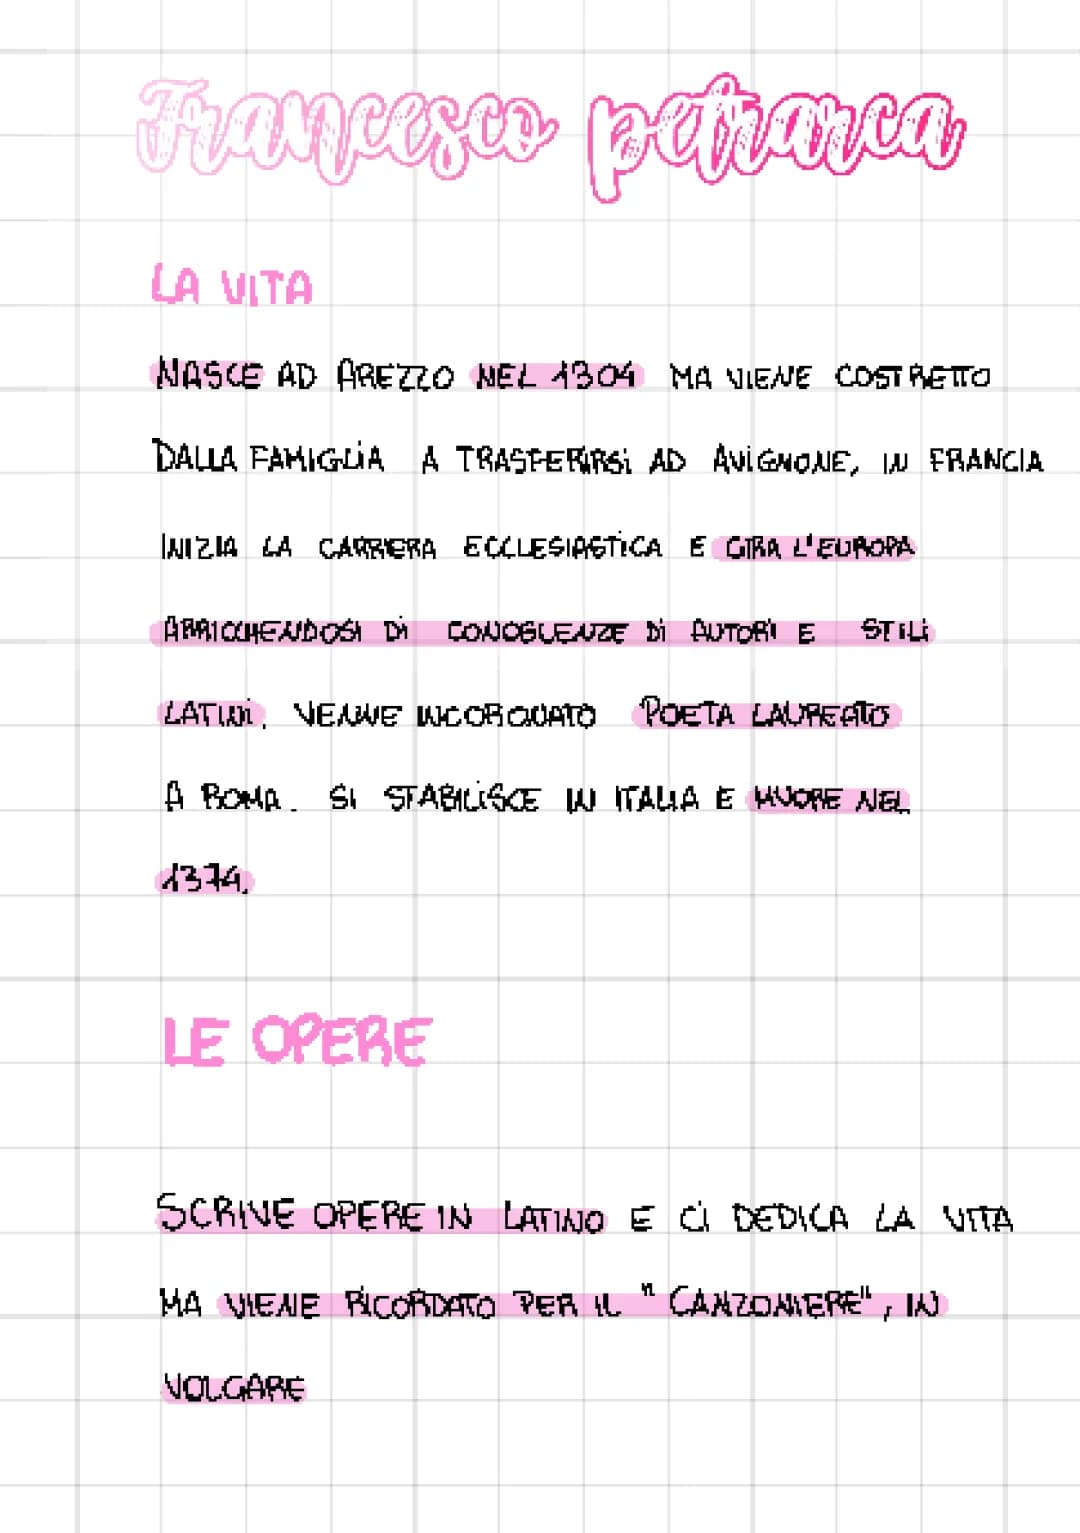 Francesco petrarca
LA VITA
NASCE AD AREZZO NEL 1304 MA VIENE COSTRETTO
DALLA FAMIGLIA A TRASFERIRSI AD AVIGNONE, IN FRANCIA
INIZIA LA CARRIERA ECCLESIASTICA E GIRA L'EUROPA
ARRICCHENDOSI DI CONOSCENZE DI AUTORI E STILI
LATINI. VENNE INCORONATO POETA LAUREATO
A ROMA. SI STABILISCE IN ITALIA E MUORE NEL
1374.
LE OPERE
SCRIVE OPERE IN LATINO E CI DEDICA LA VITA
MA VIENE RICORDATO PER IL "CANZONIERE", IN
VOLGARE